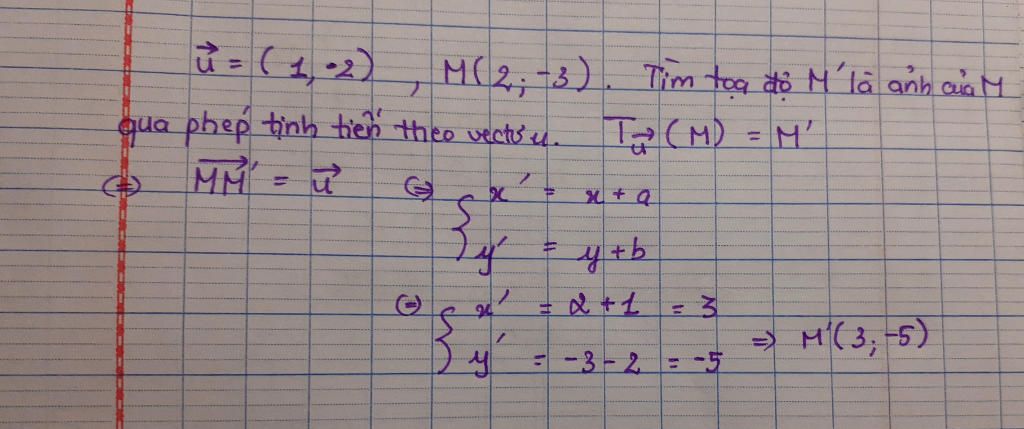 u⃗ = (1, -2) , M(2; -3). Tìm tọa độ M' là ảnh của M
qua phép tịnh tiến theo vectơ u. T_u⃗ (M) = M'
⇔ MM'⃗ = u⃗ ⇔ { x' = x + a
y' = y + b
⇔ { x' = 2 + 1 = 3
y' = -3 - 2 = -5 ⇒ M'(3; -5)